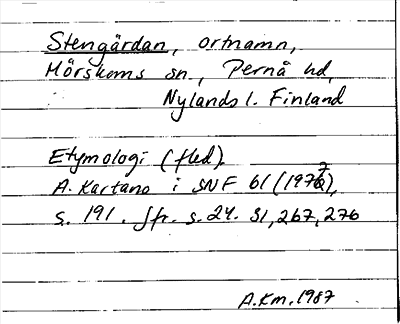 Stengärdan, ortnamn,
Mörskoms sn., Pernå hd,
Nylands l. Finland
Etymologi (fled).
A. Kartano i SNF 61 (1977),
s. 191. Jfr. s. 24. 31, 267, 276
A.Km. 1987